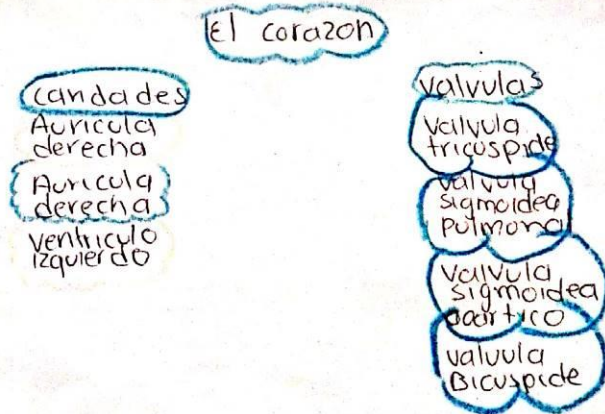 El corazon
candades
Auricula
derecha
Auricula
derecha
ventriculo
izquierdo
valvulas
valvula
tricuspide
valvula
sigmoidea
pulmonal
valvula
sigmoidea
oaortico
valvula
Bicuspide